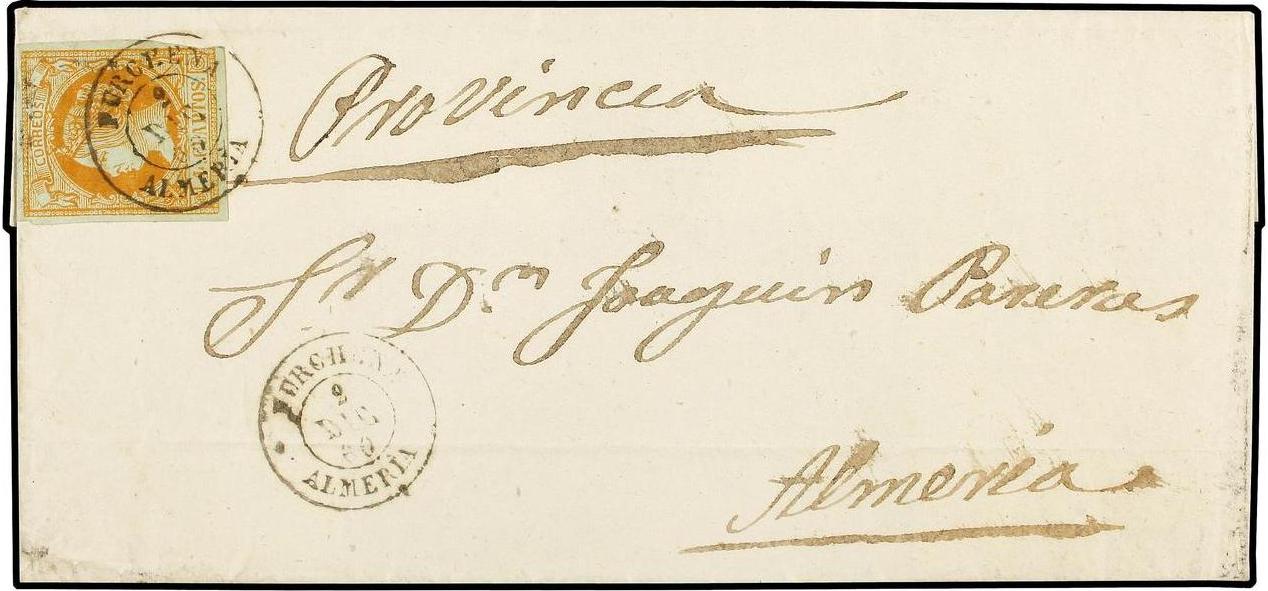 CORREOS
PURCHENA
2
DIC
ALMERIA
Provincia
Sr Dn Joaquin Pareras
PURCHENA
2
DIC
60
ALMERIA
Almeria